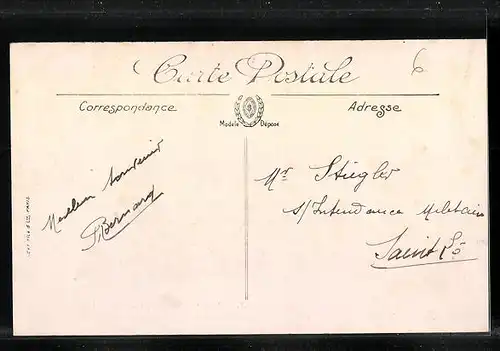 Carte Postale
6
Correspondance
Adresse
Modèle Déposé
Meilleur souvenir
Bernard
Mr Stiegler
s/Intendance Militaire
Saint Lô